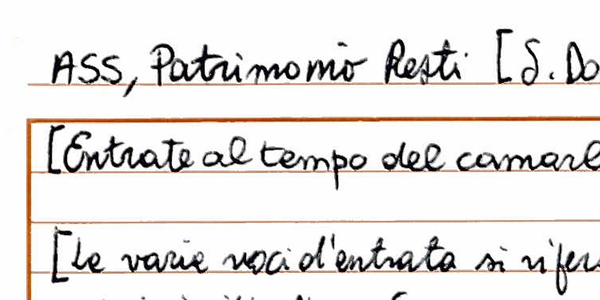 ASS, Patrimonio Resti [S. Do
[Entrate al tempo del camarl
[le varie voci d'entrata si rifer